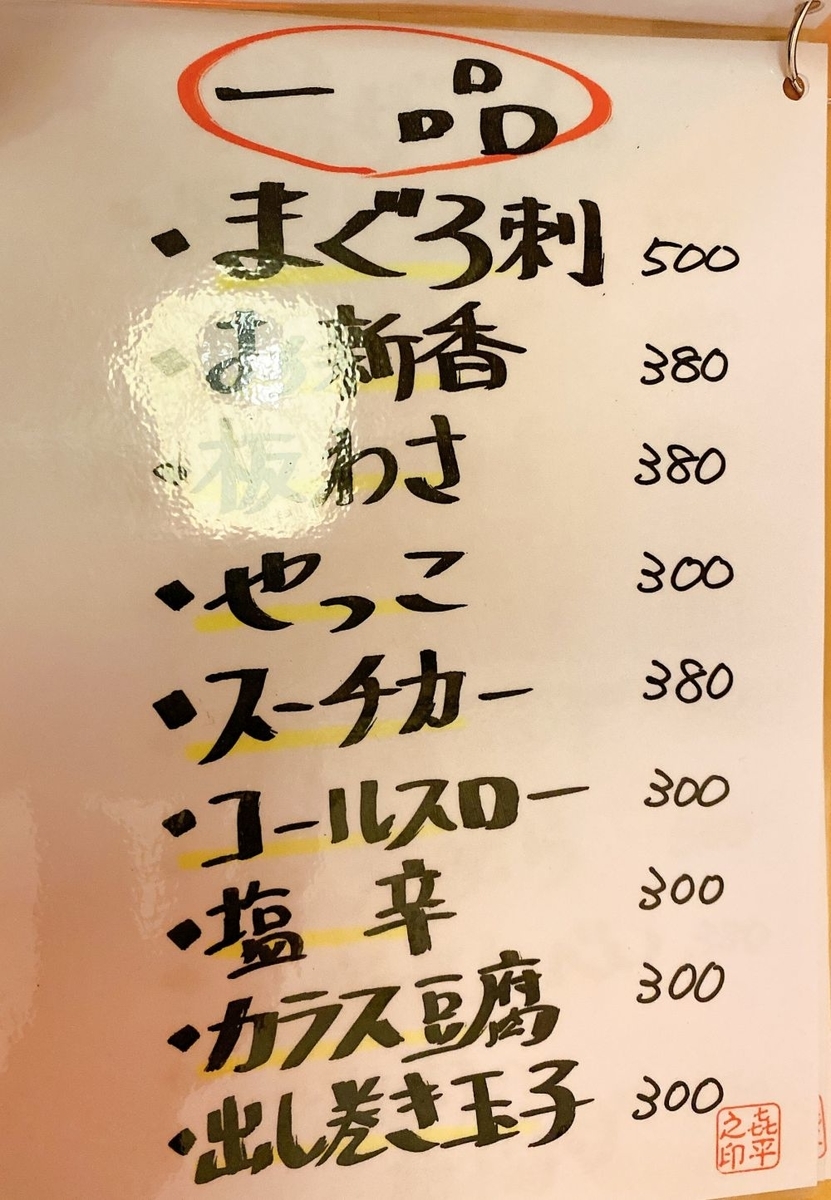 一品
・まぐろ刺 500
・お新香 380
・板わさ 380
・やっこ 300
・スーチカー 380
・コールスロー 300
・塩辛 300
・カラス豆腐 300
・出し巻き玉子 300
㐂平之印